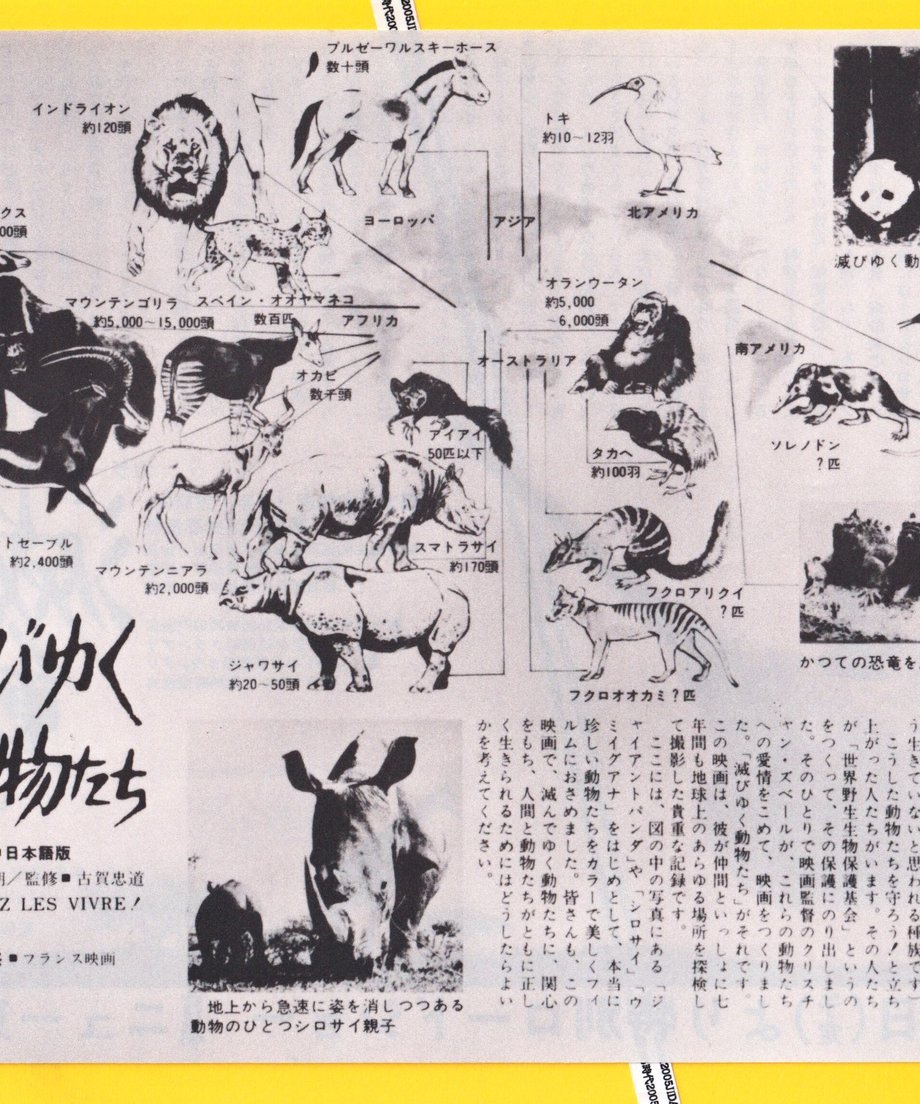 プルゼーワルスキーホース
数十頭
インドライオン
約120頭
トキ
約10〜12羽
クス
00頭
ヨーロッパ
アジア
北アメリカ
滅びゆく動
オランウータン
約5,000
〜6,000頭
マウンテンゴリラ
約5,000〜15,000頭
スペイン・オオヤマネコ
数百匹
アフリカ
オーストラリア
南アメリカ
オカピ
数千頭
アイアイ
50匹以下
タカヘ
約100羽
ソレノドン
?匹
トセーブル
約2,400頭
マウンテンニアラ
約2,000頭
スマトラサイ
約170頭
フクロアリクイ
?匹
ジャワサイ
約20〜50頭
フクロオオカミ?匹
かつての恐竜を
びゆく
物たち
日本語版
／監修■古賀忠道
Z LES VIVRE!
■フランス映画
う生きていないと思われる種族です
こうした動物たちを守ろう!と立ち
上がった人たちがいます。その人たち
が「世界野生生物保護基金」というの
をつくって、その保護にのり出しまし
た。そのひとりで映画監督のクリスチ
ャン・ズベールが、これらの動物たち
への愛情をこめて、映画をつくりまし
た。「滅びゆく動物たち」がそれです。
この映画は、彼が仲間といっしょに七
年間も地球上のあらゆる場所を探検し
て撮影した貴重な記録です。
ここには、図の中の写真にある「ジ
ャイアントパンダ」や「シロサイ」「ウ
ミイグアナ」をはじめとして、本当に
珍しい動物たちをカラーで美しくフィ
ルムにおさめました。皆さんも、この
映画で、滅んでゆく動物たちに、関心
をもち、人間と動物たちがともに正し
く生きられるためにはどうしたらよい
かを考えてください。
地上から急速に姿を消しつつある
動物のひとつシロサイ親子